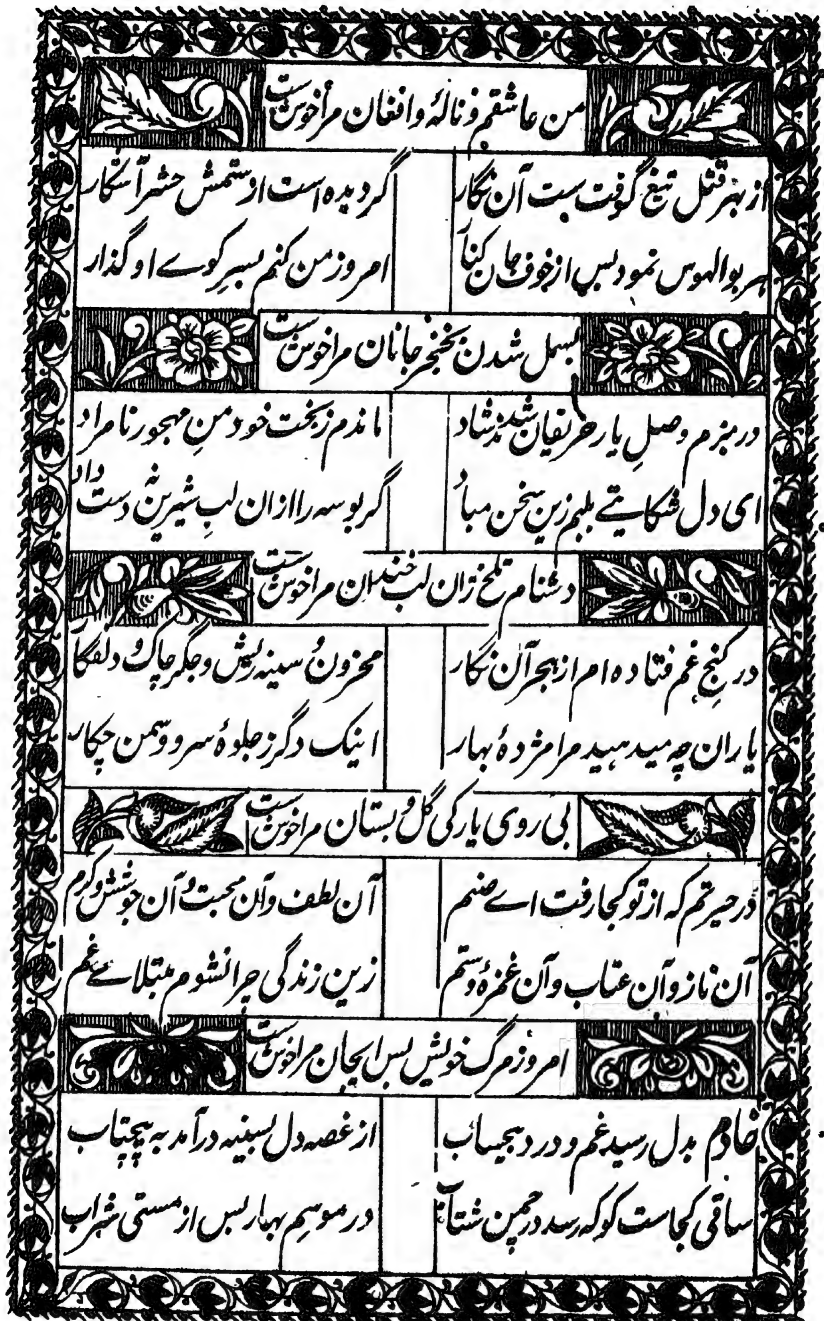 من عاشقم و نالهٔ و افغان مرا خوش ست
از بهر قتل تیغ گرفت ست آن نگار گردیده است از ستمش حشر آشکار
هر بوالهوس نمود بس از خوف جان کنار امروز من کنم بسرِ کوے او گذار
بسمل شدن بخنجر جانان مرا خوش ست
در بزم وصلِ یار حریفان شدند شاد ماندم ز بخت خود منِ مهجور نامراد
ای دل شکایتے بلبم زین سخن مباد گر بوسه را ازان لبِ شیرین نه دست داد
دشنام تلخ زان لب خندان مرا خوش ست
در کنجِ غم فتاده ام از هجر آن نگار محزون و سینه ریش و جگر چاک و دلفگار
یاران چه میدهید مرا مژدهٔ بهار اینک دگر ز جلوهٔ سرو و سمن چکار
بی روی یار کی گل و بستان مرا خوش ست
در حیرتم که از تو کجا رفت اے صنم آن لطف و آن محبت و آن جوشش و کرم
آن ناز و آن عتاب و آن غمزهٔ و ستم زین زندگی چرا نشوم مبتلاے غم
امروز مرگ خویش بس ایجان مرا خوش ست
خادم بدل رسید غم و درد بیحساب از غصه دل بسینه درآمد به پیچتاب
ساقی کجاست کو که رسد در چمن شتاب در موسم بهار بس از مستی شراب